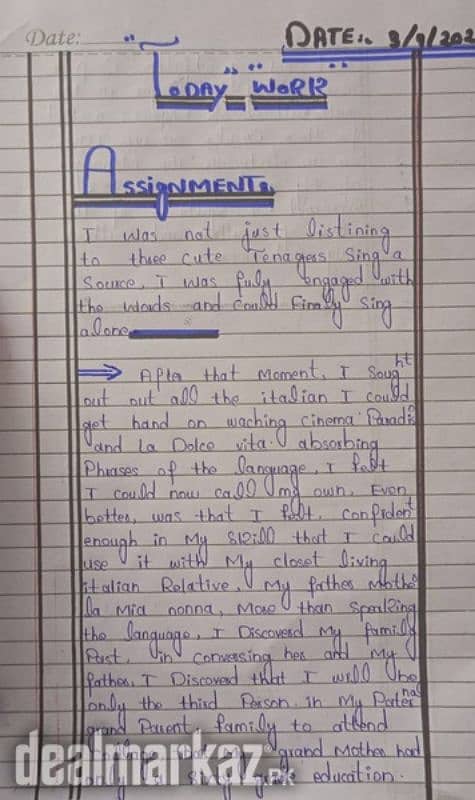 Date:
DATE:. 3/9/202
TODAY WORK
ASSIGNMENT:
I was not just listining
to three cute Tenagers Sing a
Source, I was fuly engaged with
the words and could Finally Sing
alone
After that Moment, I Sought
out out all the italian I could
get hand on waching cinema Paradi
and la Dolce vita. absorbing
Phrases of the language, I felt
I could now call my own. Even
better, was that I felt confident
enough in My Skill that I could
use it with My closet living
italian Relative, My father Mothe
la Mia nonna, More than Speaking
the language, I Discoverd My family
Past, in conversing her and My
father, I Discoverd that I will be
only the third Person in My Paternal
grand Parent family to attend
that My grand Mother had
only education.
dealmarkaz.pk